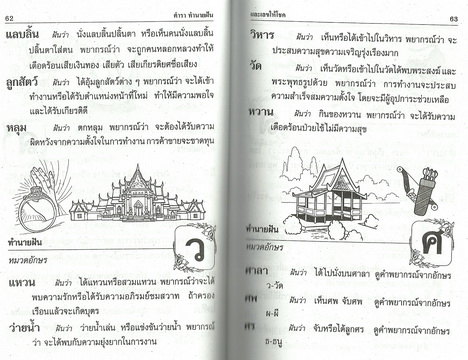 62
ตำรา ทำนายฝัน
แลบลิ้น ฝันว่า นั่งแลบลิ้นปลิ้นตา หรือเห็นคนนั่งแลบลิ้น
ปลิ้นตาใส่ตน พยากรณ์ว่า จะถูกคนหลอกลวงทำให้
เดือดร้อนเสียเงินทอง เสียตัว เสียเกียรติยศชื่อเสียง
ลูกสัตว์ ฝันว่า ได้อุ้มลูกสัตว์ต่าง ๆ พยากรณ์ว่า จะได้เข้า
ทำงานหรือได้รับตำแหน่งหน้าที่ใหม่ ทำให้มีความพอใจ
และได้รับเกียรติดี
หลุม ฝันว่า ตกหลุม พยากรณ์ว่า จะต้องได้รับความ
ผิดหวังจากความตั้งใจในการทำงาน การค้าขายจะขาดทุน
ทำนายฝัน
หมวดอักษร
ว
แหวน ฝันว่า ได้แหวนหรือสวมแหวน พยากรณ์ว่าจะได้
พบความรักหรือได้รับความอภิรมย์ชมสวาท ถ้าครอง
เรือนแล้วจะเกิดบุตร
ว่ายน้ำ ฝันว่า ว่ายน้ำเล่น หรือแข่งขันว่ายน้ำ พยากรณ์
ว่า จะได้พบกับความยุ่งยากในการงาน
และเลขให้โชค
63
วิหาร ฝันว่า เห็นหรือได้เข้าไปในวิหาร พยากรณ์ว่า จะ
ประสบความสุขความเจริญรุ่งเรืองมาก
วัด ฝันว่า เห็นวัดหรือเข้าไปในวัดได้พบพระสงฆ์ และ
พระพุทธรูปด้วย พยากรณ์ว่า การทำงานจะประสบ
ความสำเร็จสมความตั้งใจ โดยจะมีผู้อุปการะช่วยเหลือ
หวาน ฝันว่า กินของหวาน พยากรณ์ว่า จะได้รับความ
เดือดร้อนป่วยไข้ไม่มีความสุข
ทำนายฝัน
หมวดอักษร
ศ
ศาลา ฝันว่า ได้ไปนั่งบนศาลา ดูคำพยากรณ์จากอักษร
ว-วัด
ศพ ฝันว่า เห็นศพ จับศพ ดูคำพยากรณ์จากอักษร
ผ-ผี
ศร ฝันว่า จับหรือได้ลูกศร ดูคำพยากรณ์จากอักษร
ธ-ธนู